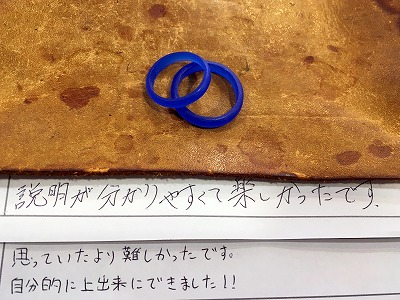 説明が分かりやすくて楽しかったです.
思っていたより難しかったです。
自分的に上出来にできました!!